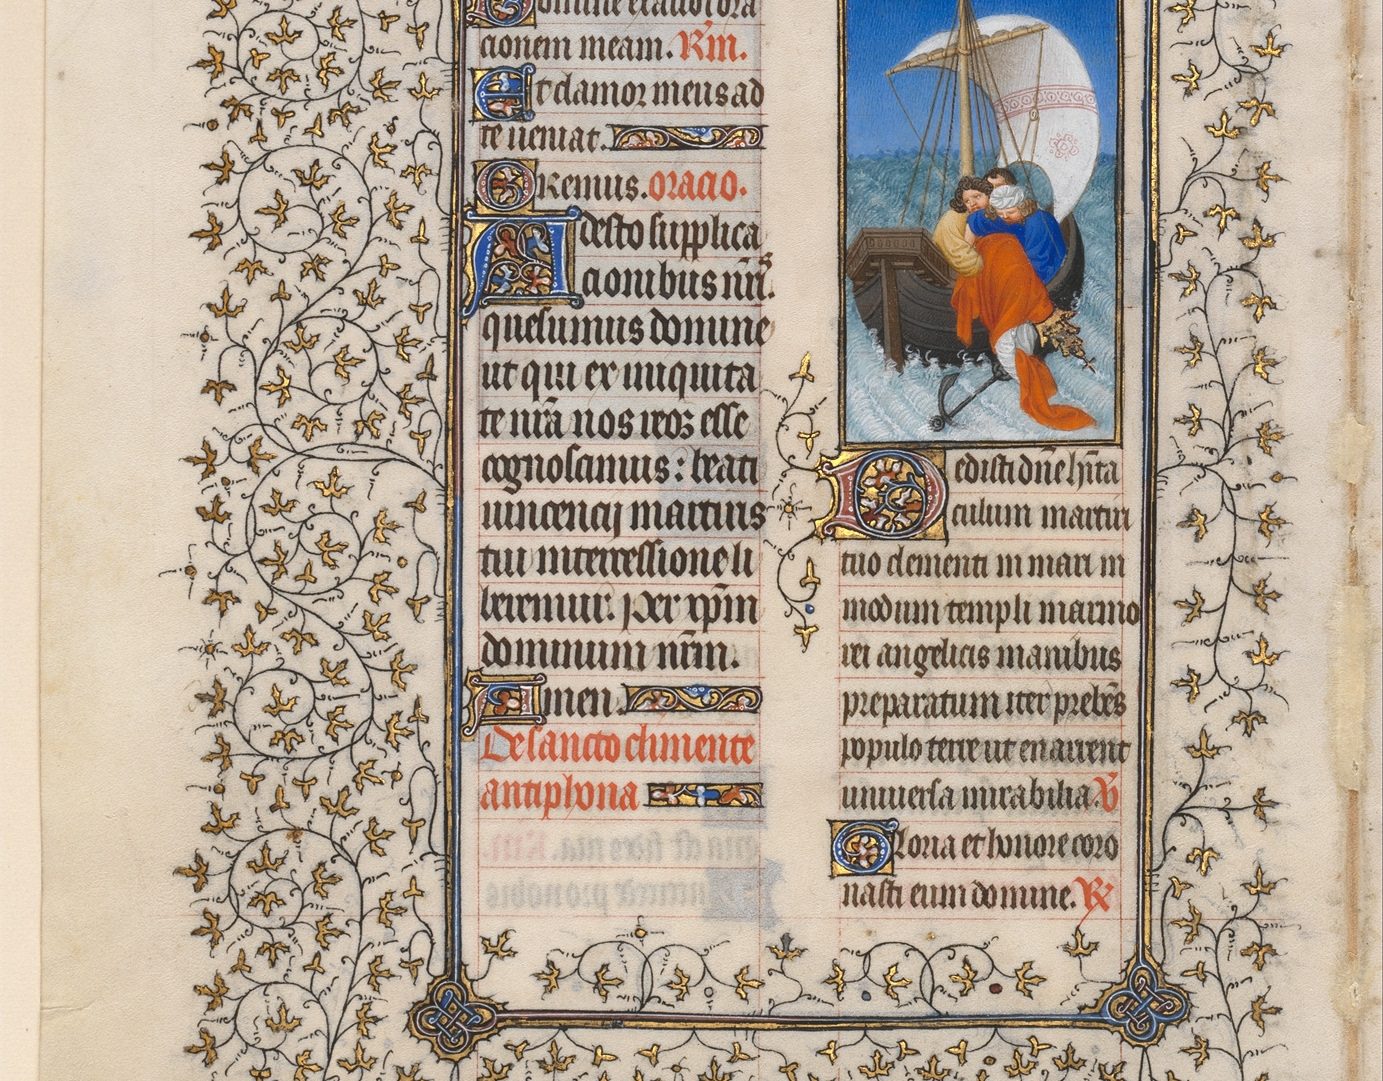 Domine exaudi ora
cionem meam. Rm.
Et clamor meus ad
te ueniat.
Oremus. oracio.
Adesto supplica
cionibus nr̄is.
quesumus domine
ut qui ex iniquita
te nr̄a nos reos esse
cognoscimus: beati
uincencij martiris
tui intercessione li
beremur. Per xp̄m
dominum nr̄m.
Amen.
De sancto climente
antiphona
Dedisti dn̄e hīta
culum martiri
tuo clementi in mari in
modum templi marmo
rei angelicis manibus
preparatum iter prebēs
populo terre ut enarrent
uniuersa mirabilia. V̄
Gloria et honore coro
nasti eum domine. R